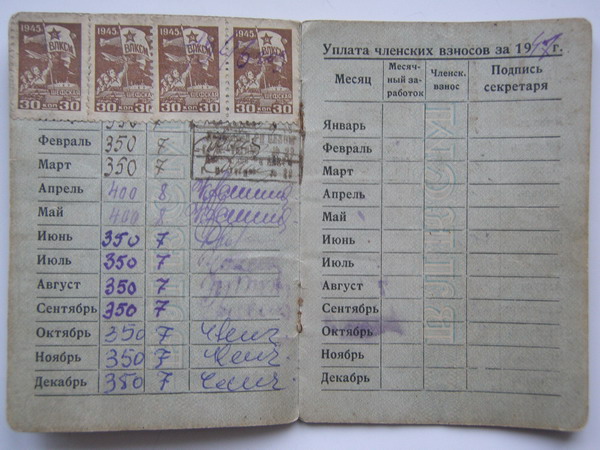 1945 1945 1945 1945
ВЛКСМ ВЛКСМ ВЛКСМ ВЛКСМ
30 коп 30 30 коп 30 30 коп 30 30 коп 30
350 7
Февраль 350 7
Март 350 7
Апрель 400 8
Май 400 8
Июнь 350 7
Июль 350 7
Август 350 7
Сентябрь 350 7
Октябрь 350 7
Ноябрь 350 7
Декабрь 350 7
Уплата членских взносов за 1947 г.
Месяц Месячный заработок Членск. взнос Подпись секретаря
Январь
Февраль
Март
Апрель
Май
Июнь
Июль
Август
Сентябрь
Октябрь
Ноябрь
Декабрь